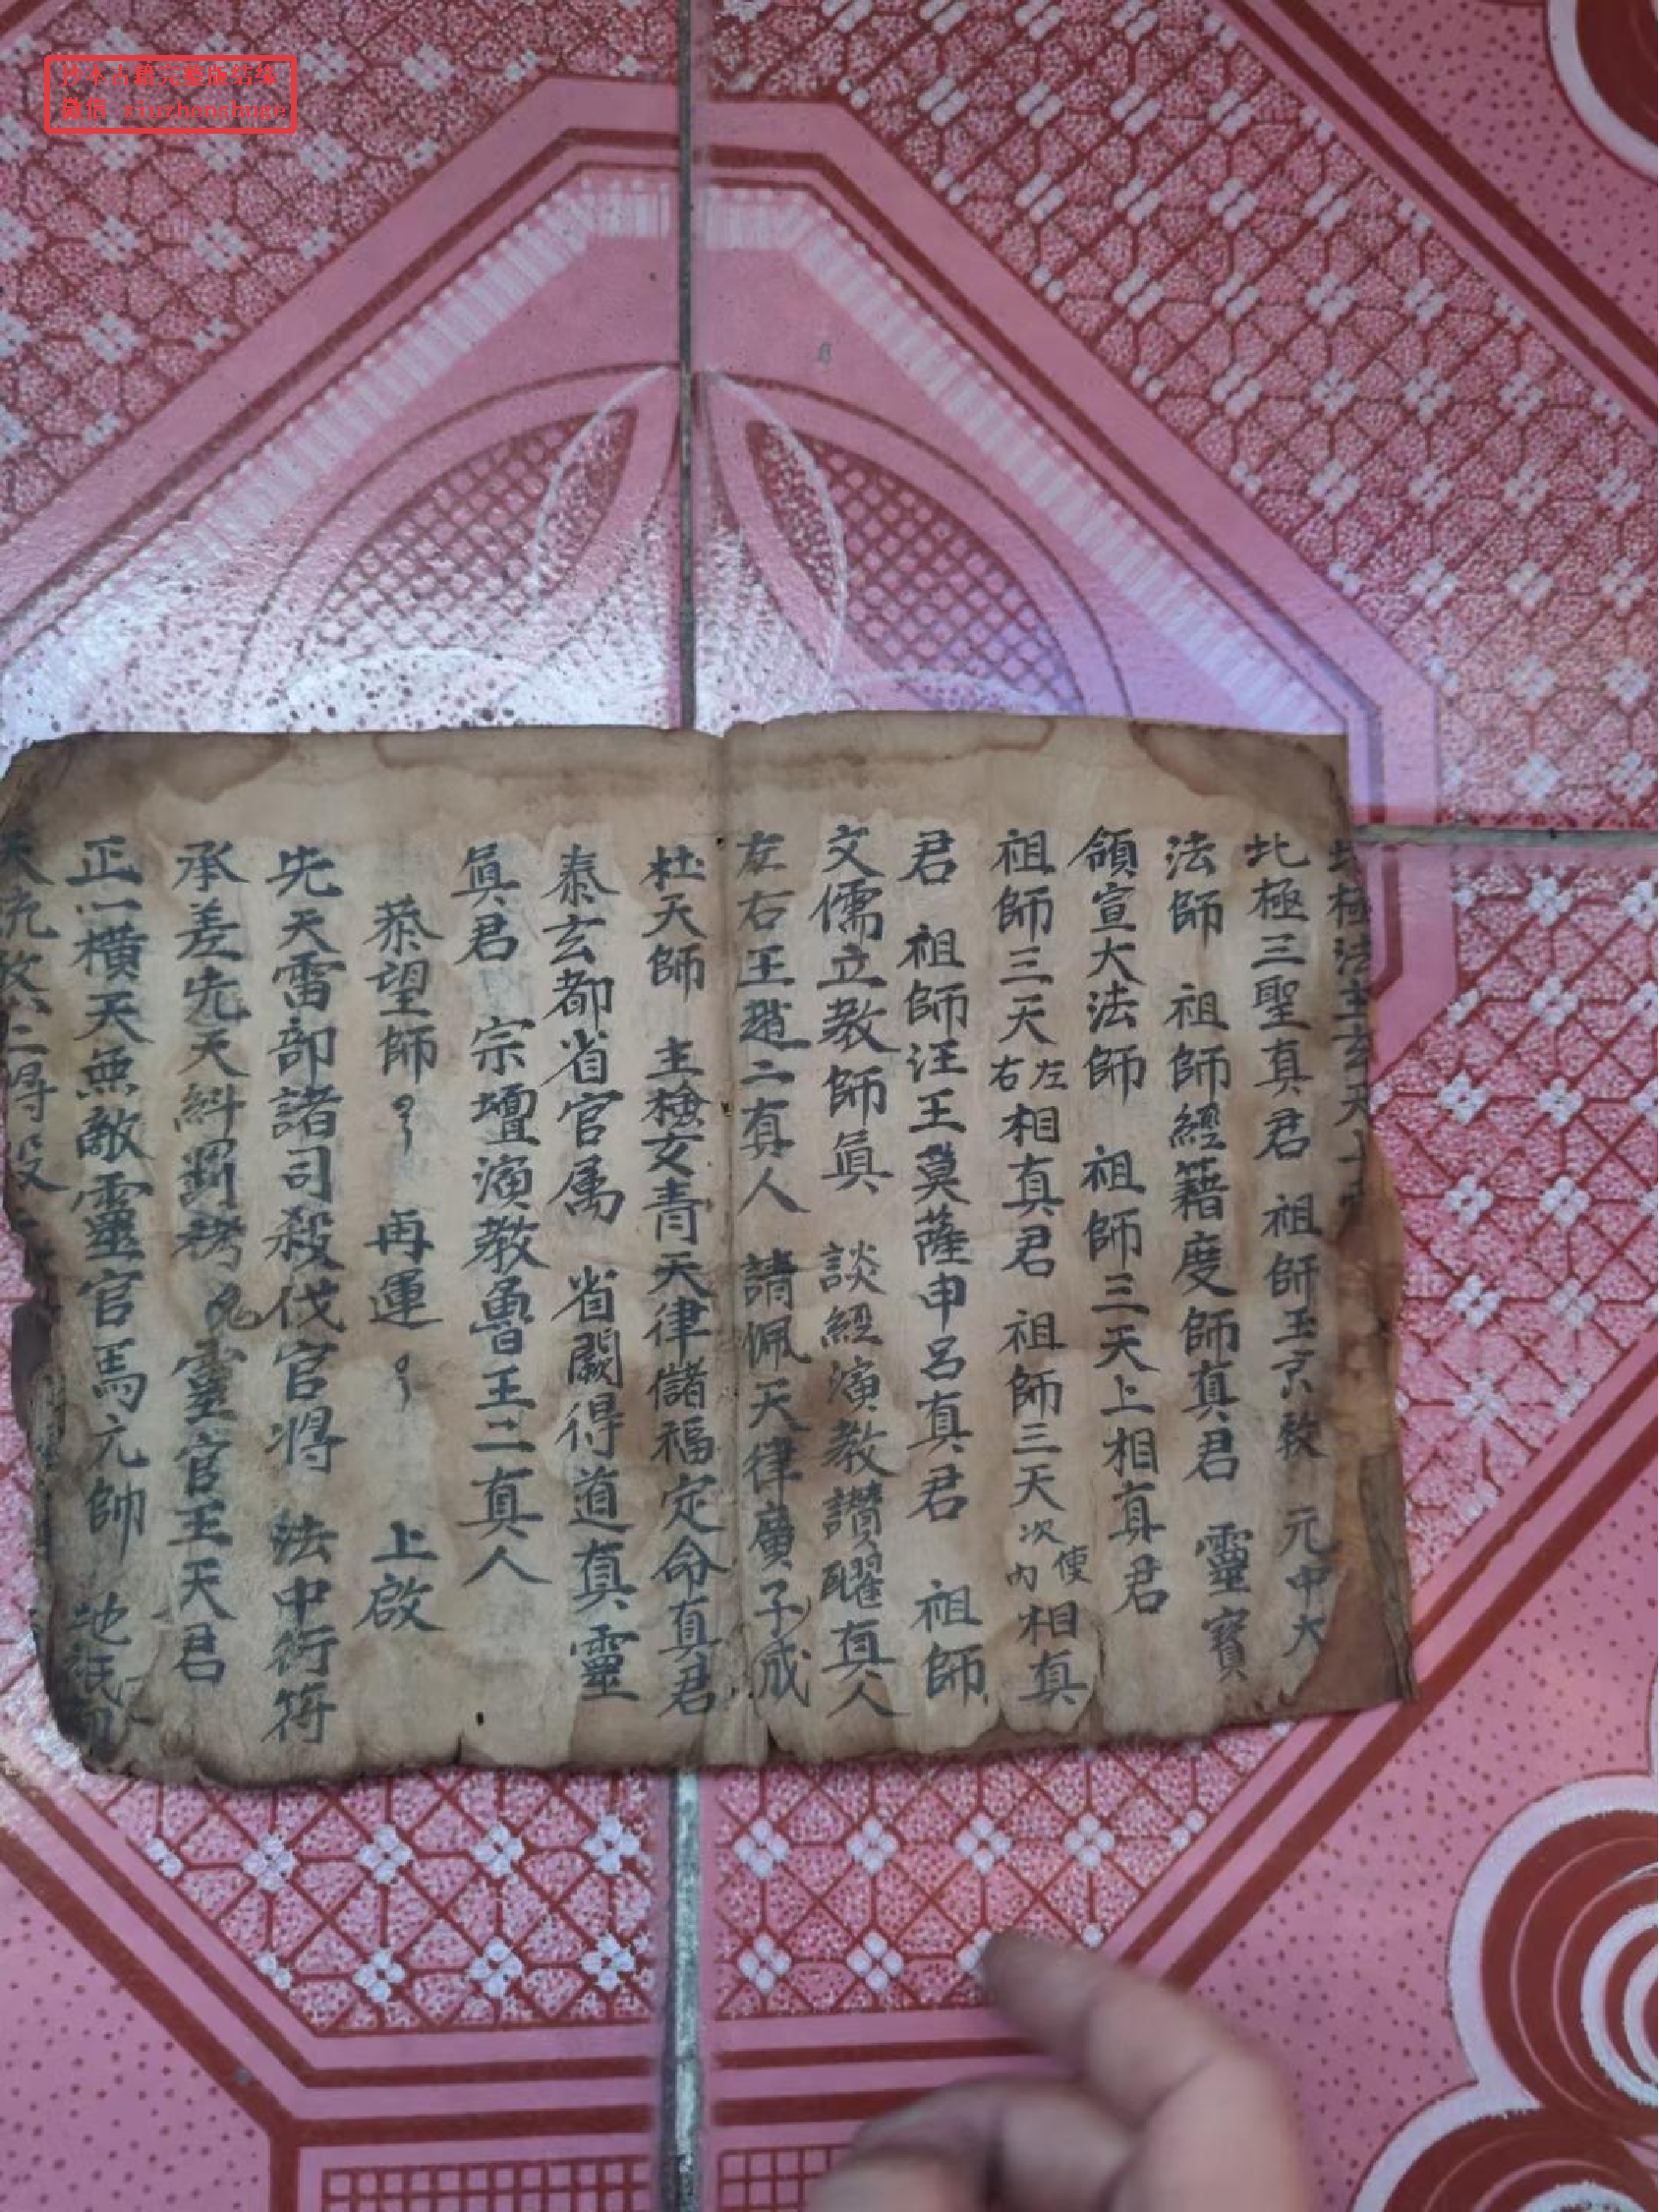 抄本古籍完整版结缘
微信 xiuzhenshuge
北極法主玄天上
北極三聖真君 祖師玉京教 元中大
法師 祖師經籍度師真君 靈寶
領宣大法師 祖師三天上相真君
祖師三天左右相真君 祖師三天次内使相真
君 祖師汪王莫薩申呂真君 祖師
文儒立教師眞 談經演教讚 真人
左右王趙二真人 請佩天律廣子成
杜天師 主檢女青天律儲福定命真君
泰玄都省官属 省闕得道真靈
眞君 宗壇演教魯王二真人
恭望師 再運 上啟
先天雷部諸司殺伐官將 法中衍符
承差先天糾罰 鬼靈官王天君
正一橫天無敵靈官馬元帥 地祇